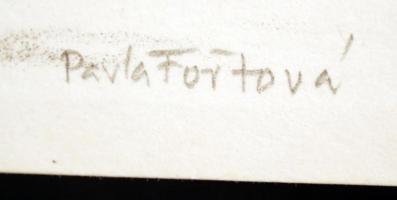 Pavla Fořtová